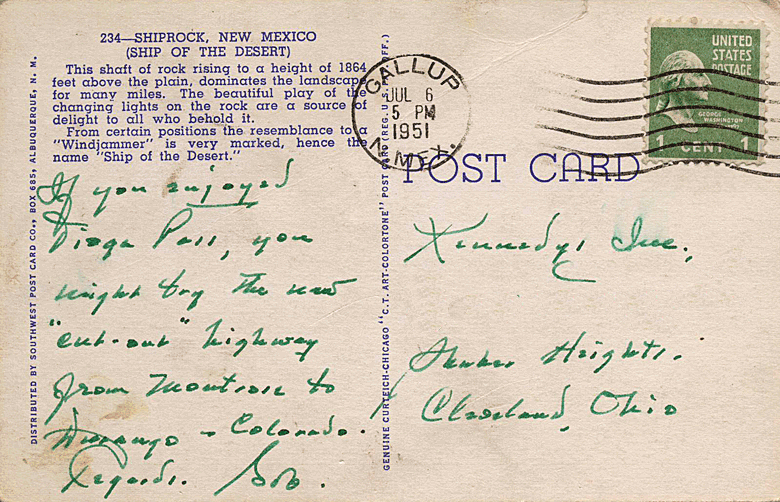 234—SHIPROCK, NEW MEXICO
(SHIP OF THE DESERT)
This shaft of rock rising to a height of 1864
feet above the plain, dominates the landscape
for many miles. The beautiful play of the
changing lights on the rock are a source of
delight to all who behold it.
From certain positions the resemblance to a
"Windjammer" is very marked, hence the
name "Ship of the Desert."
If you enjoyed
Tioga Pass, you
might try the new
"cut-out" highway
from Montrose to
Durango - Colorado.
Regards. Bob.
DISTRIBUTED BY SOUTHWEST POST CARD CO., BOX 685, ALBUQUERQUE, N. M.
GENUINE CURTEICH-CHICAGO "C.T. ART-COLORTONE" POST CARD (REG. U.S. OFF.)
GALLUP
JUL 6
5 PM
1951
N. MEX.
UNITED
STATES
POSTAGE
GEORGE
WASHINGTON
1 CENT 1
POST CARD
Kennedys Inc.,
Shaker Heights.
Cleveland, Ohio